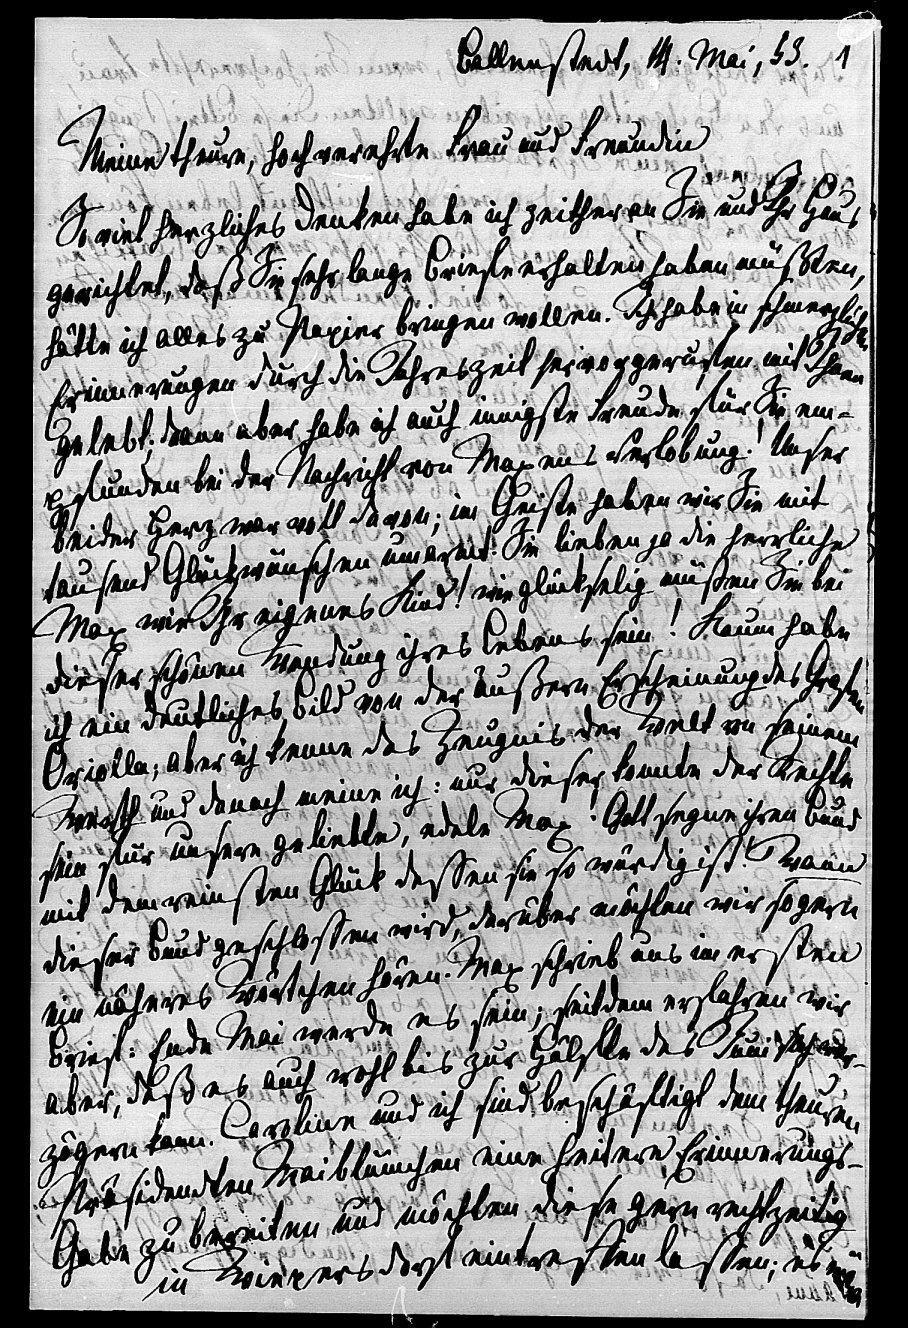 Ballenstedt, 14. Mai, 53. 1
Meine theure, hochverehrte Frau und Freundin
So viel herzliches Denken habe ich zeither an Sie und Ihr Haus
gerichtet, daß Sie sehr lange Briefe erhalten haben müßten,
hätte ich alles zu Papier bringen wollen. Ich habe in schmerzlichsten
Erinnerungen durch die Jahreszeit hervorgerufen mit Ihnen
gelebt; dann aber habe ich auch innigste Freude für Sie em-
pfunden bei der Nachricht von Maxens Verlobung! Unser
beider Herz war voll davon; im Geiste haben wir Sie mit
tausend Glückwünschen umarmt. Sie lieben ja die herrliche
Max wie Ihr eigenes Kind! wie glückselig müßen Sie bei
dieser schönen Wendung ihres Lebens sein! Kaum habe
ich ein deutliches Bild von der äußern Erscheinung des Grafen
Oriolla; aber ich kenne das Zeugnis der Welt von seinem
Werth und danach meine ich: nur dieser konnte der Rechte
sein für unsere geliebte, edele Max! Gott segne ihren Bund
mit dem reinsten Glück dessen sie so würdig ist! Wann
dieser Bund geschlossen wird, darüber möchten wir so gern
ein näheres Wörtchen hören. Max schrieb uns im ersten
Brief: Ende Mai werde es sein; seitdem erfahren wir
aber, daß es auch wohl bis zur Hälfte des Juni sich ver-
zögern kann. Caroline und ich sind beschäftigt dem theuren
Präsidendten Maiblümchen eine heitere Erinnerungs-
Gabe zu bereiten und möchten diese gern rechtzeitig
in Wiepersdorf eintreffen lassen; es